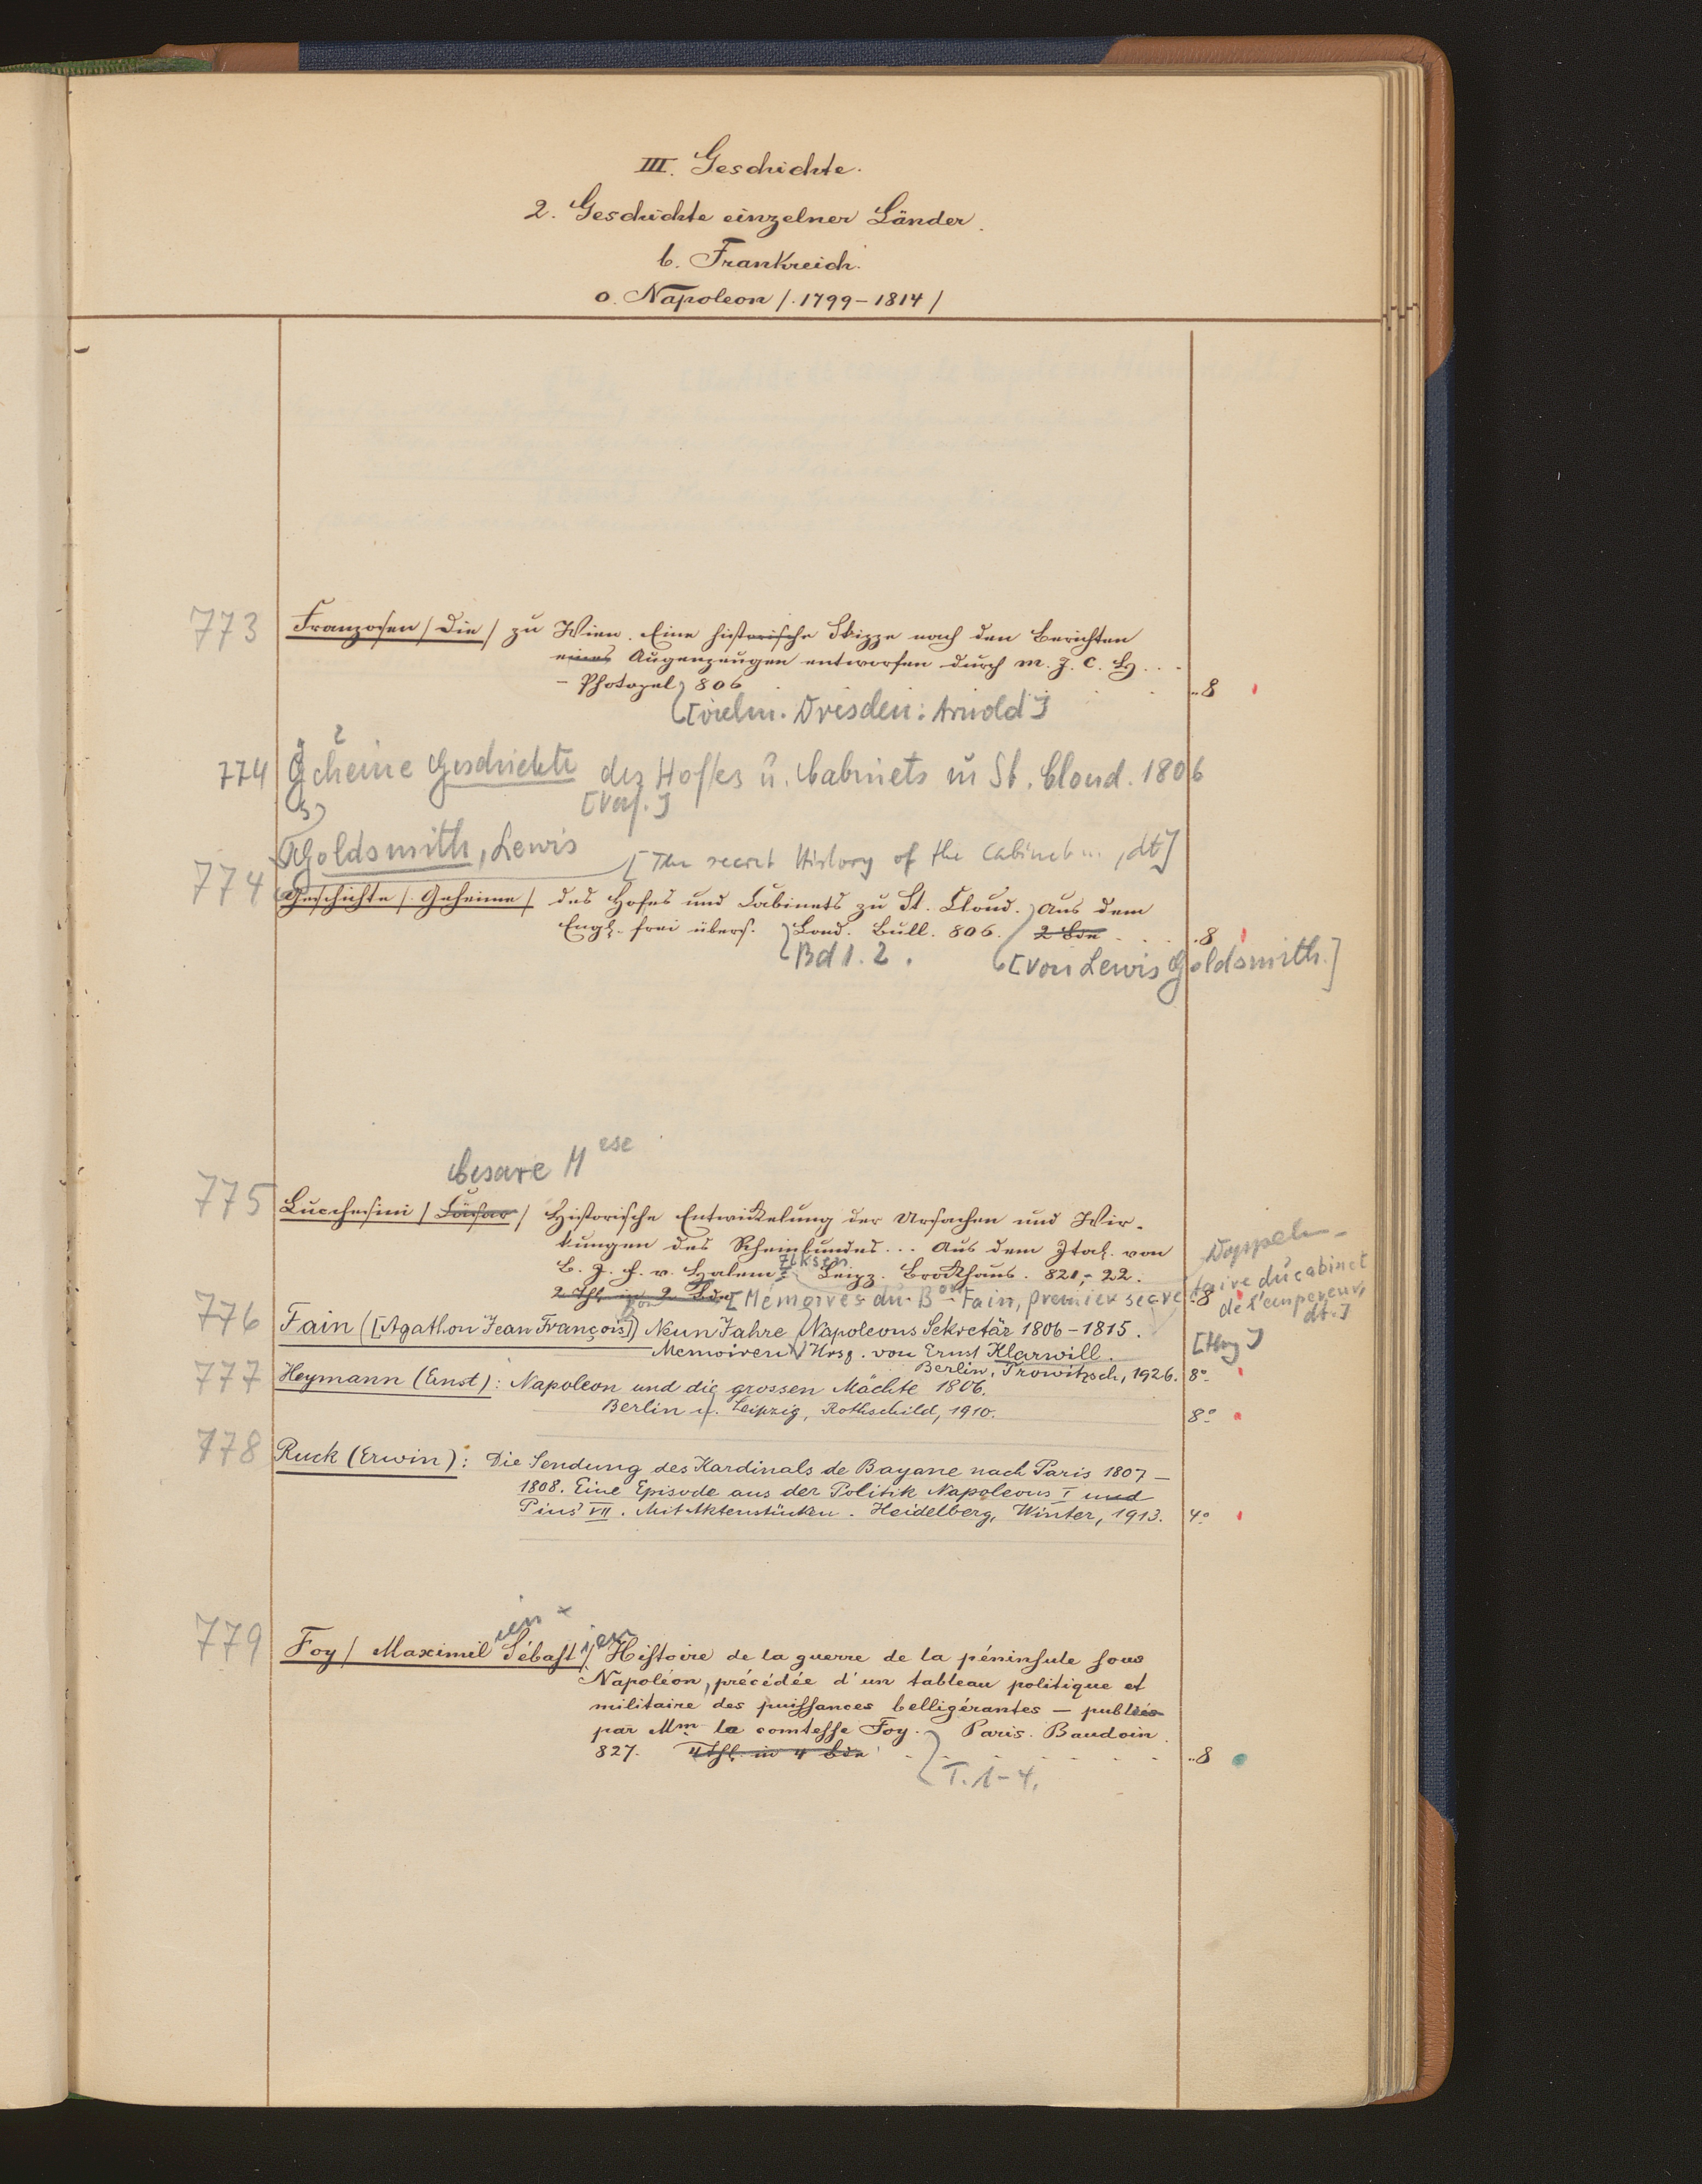 III. Geschichte.
2. Geschichte einzelner Länder.
b. Frankreich.
o. Napoleon /. 1799-1814 /
773 Franzosen / Die / zu Wien. Eine historische Skizze nach den Berichten
eines Augenzeugen entworfen durch M. J. C. H...
- Photozel, 806 ..8
[vielm. Dresden: Arnold]
2
774 Geheime Geschichte des Hofes u. Cabinets in St. Cloud. 1806
[Verf.]
Goldsmith, Lewis [The secret History of the Cabinet..., dt]
774 Geschichte /. Geheime / des Hofes und Cabinets zu St. Cloud. Aus dem
Engl. frei übers. Lond. Bull. 806. 2 Bde .8
Bd 1. 2. [von Lewis Goldsmith.]
Cesare M ese
775 Lucchesini / Cäsar / Historische Entwickelung der Ursachen und Wir-
kungen des Rheinbundes... Aus dem Ital. von
B. J. F. v. Halem. Leipz. Brockhaus. 821,- 22.
2 Thl. in 2 Bde .8
[Mémoires du Bon Fain, premier secre
taire du cabinet
de l'empereur,
dt.]
776 Fain ([Agathon Jean François]) Neun Jahre Napoleons Sekretär 1806-1815.
Memoiren Hrsg. von Ernst Klarwill. [Hrsg]
Berlin, Trowitzsch, 1926. 8°
777 Heymann (Ernst): Napoleon und die grossen Mächte 1806.
Berlin u. Leipzig, Rothschild, 1910. 8°
778 Ruck (Erwin): Die Sendung des Kardinals de Bayane nach Paris 1807-
1808. Eine Episode aus der Politik Napoleons I und
Pius' VII. Mit Aktenstücken. Heidelberg, Winter, 1913. 4°
ien x ien
779 Foy / Maximil Sébast / Histoire de la guerre de la péninsule sous
Napoléon, précédée d'un tableau politique et
militaire des puissances belligérantes - publiée
par Mm la comtesse Foy. Paris. Baudoin.
827. 4 Thl. in 4 Bde ..8
T. 1-4.